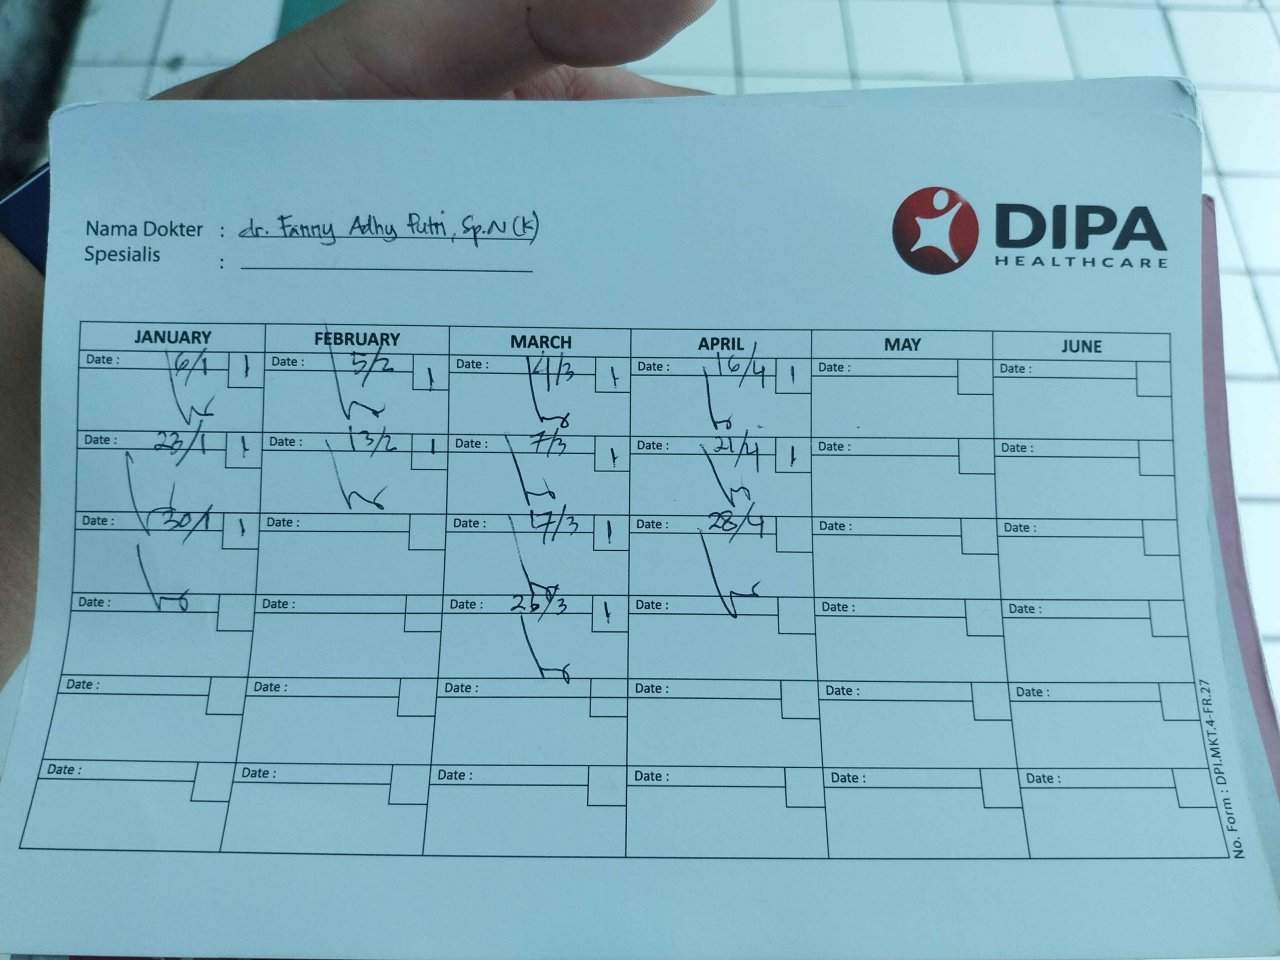 Nama Dokter : dr. Fanny Adhy Putri, Sp.N (K)
Spesialis :
DIPA
HEALTHCARE
JANUARY FEBRUARY MARCH APRIL MAY JUNE
Date : 6/1 1 Date : 5/2 1 Date : 4/3 1 Date : 16/4 1 Date : Date :
Date : 23/1 1 Date : 13/2 1 Date : 7/3 1 Date : 21/4 1 Date : Date :
Date : 30/1 1 Date : Date : 17/3 1 Date : 28/4 Date : Date :
Date : Date : Date : 26/3 1 Date : Date : Date :
Date : Date : Date : Date : Date : Date :
Date : Date : Date : Date : Date : Date :
No. Form : DPI.MKT.4-FR.27